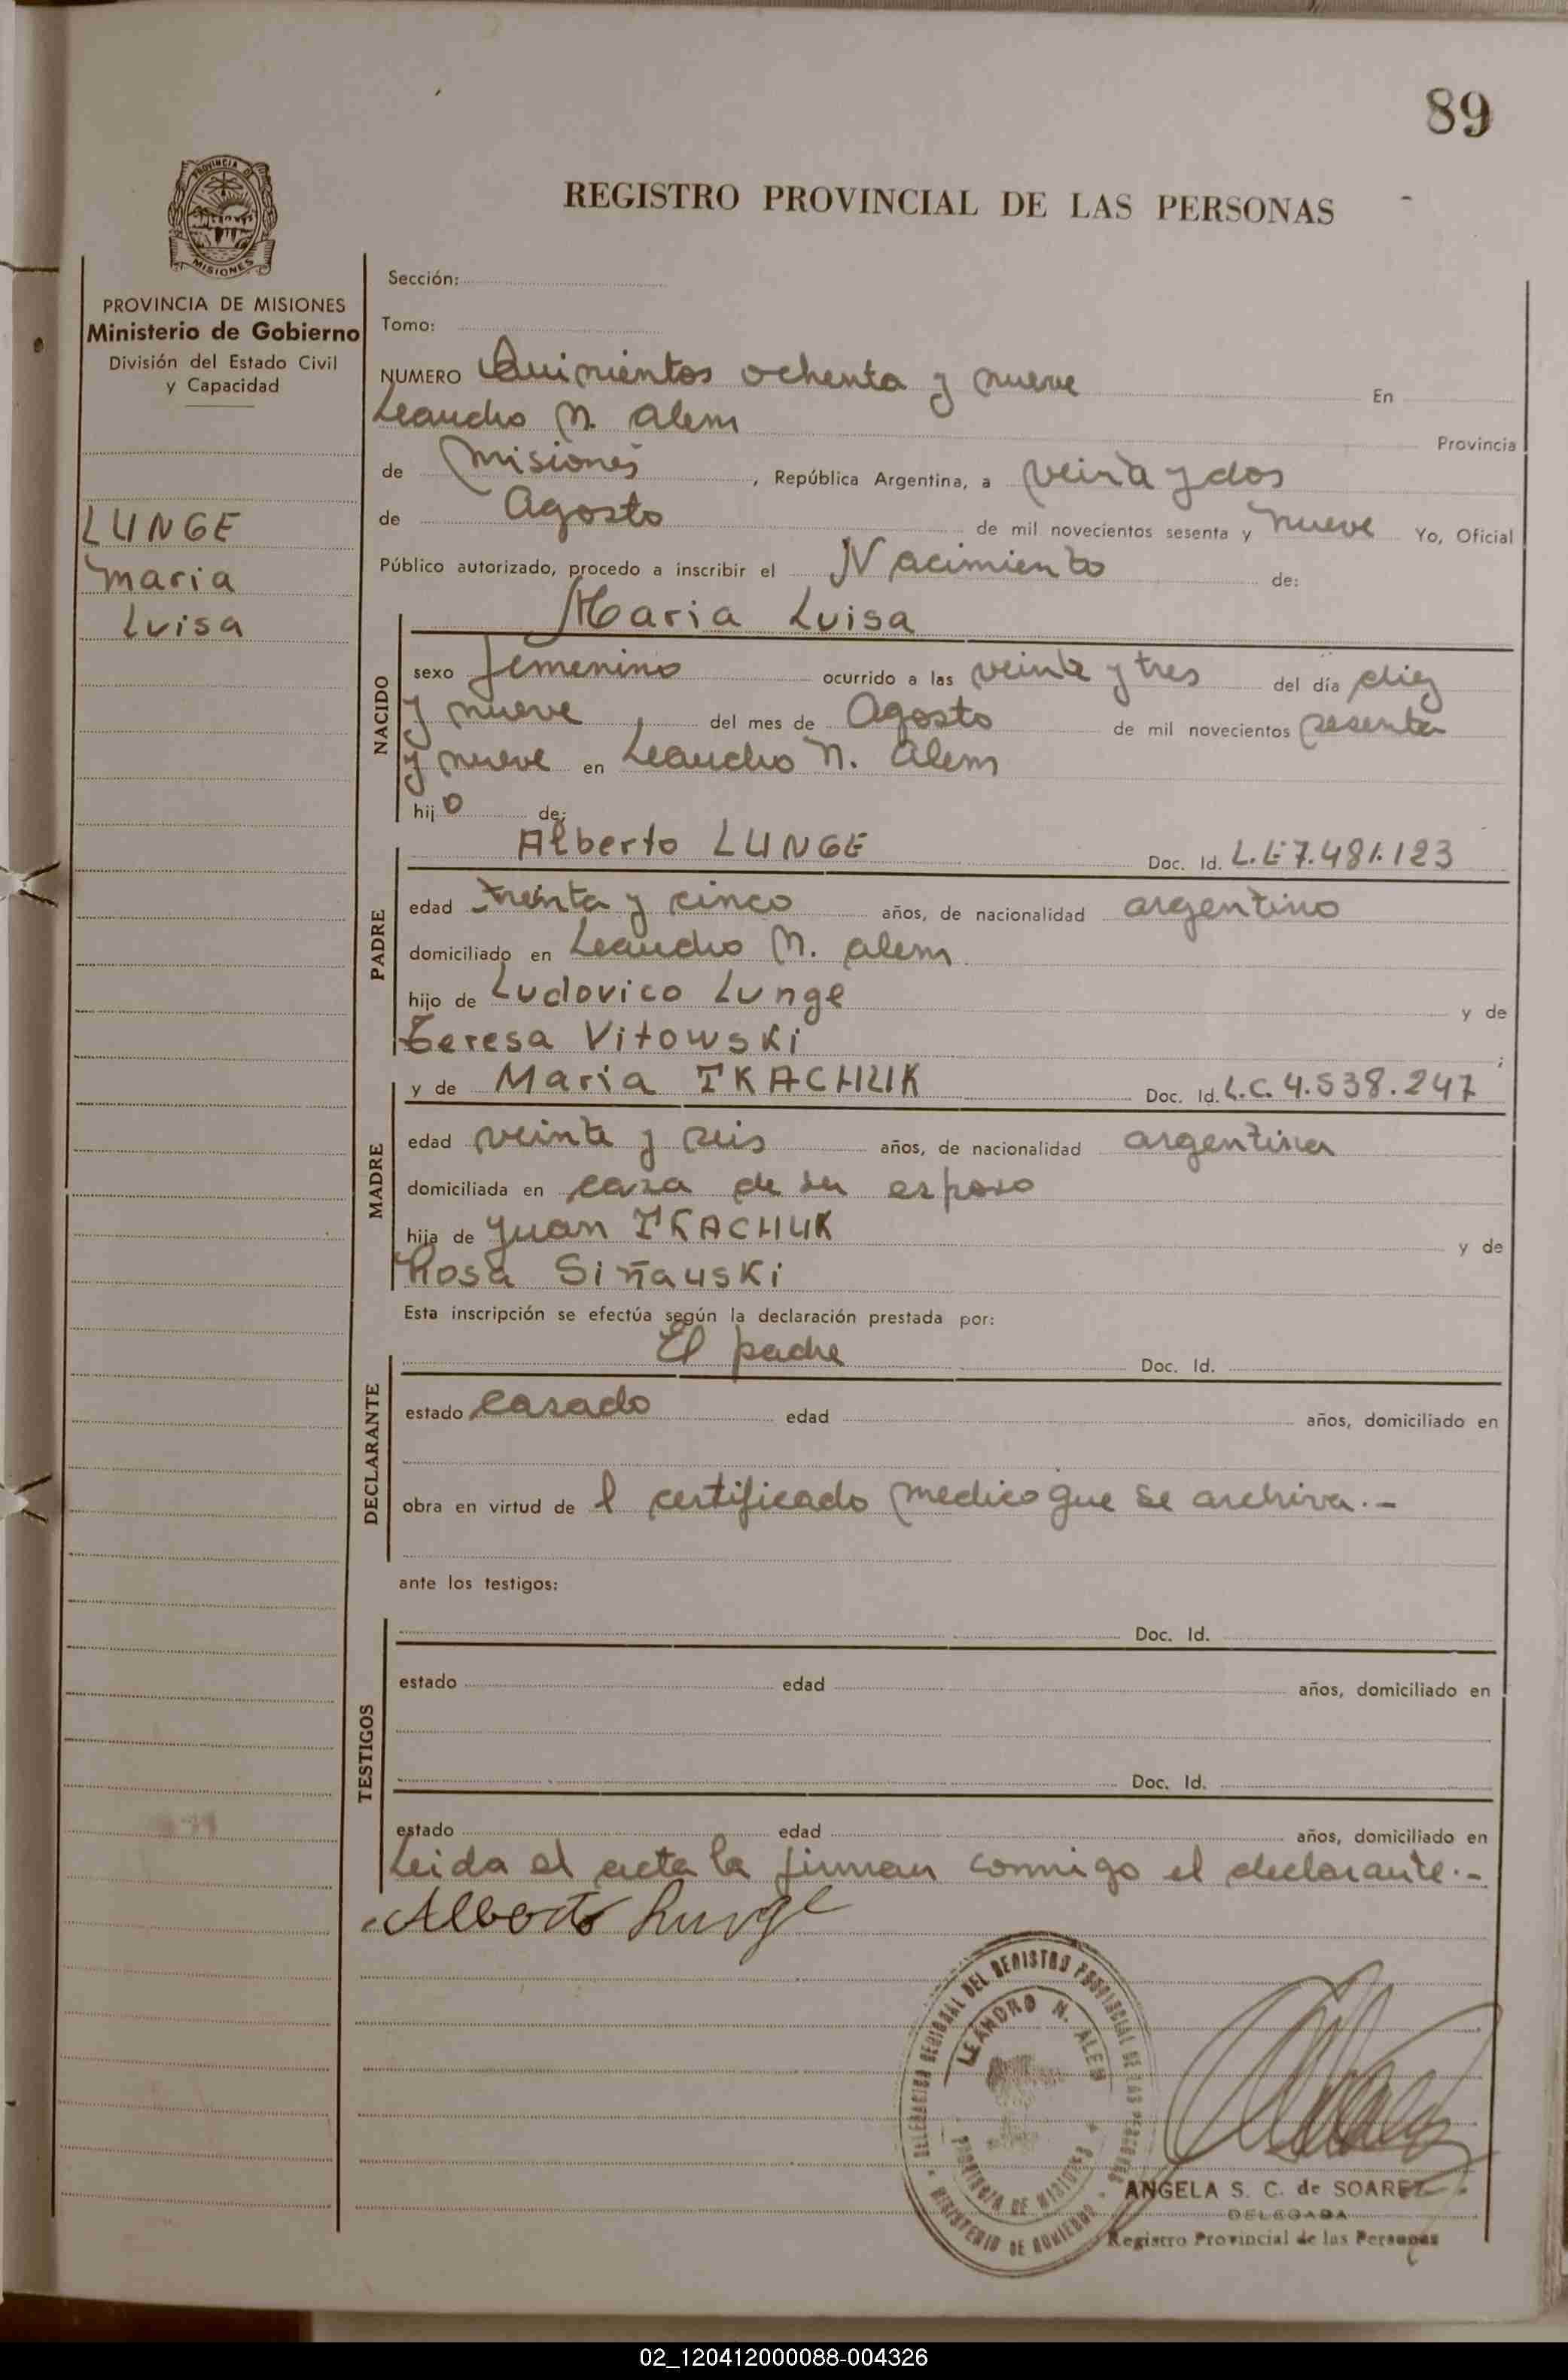 89
PROVINCIA DE
MISIONES
REGISTRO PROVINCIAL DE LAS PERSONAS
PROVINCIA DE MISIONES
Ministerio de Gobierno
División del Estado Civil
y Capacidad
LUNGE
Maria
Luisa
Sección:
Tomo:
NUMERO Quinientos ochenta y nueve En
Leandro N. Alem Provincia
de Misiones, República Argentina, a veinta y dos
de Agosto de mil novecientos sesenta y nueve Yo, Oficial
Público autorizado, procedo a inscribir el Nacimiento de:
Maria Luisa
NACIDO
sexo femenino ocurrido a las veinte y tres del día diez
y nueve del mes de Agosto de mil novecientos sesenta
y nueve en Leandro N. Alem
hijo de:
PADRE
Alberto LUNGE Doc. Id. L.E 7.481.123
edad treinta y cinco años, de nacionalidad argentino
domiciliado en Leandro N. Alem
hijo de Ludovico Lunge y de
Teresa Vitowski;
MADRE
y de Maria TKACHUK Doc. Id. L.C. 4.538.247
edad veinte y seis años, de nacionalidad argentina
domiciliada en casa de su esposo
hija de Juan TKACHUK y de
Rosa Siñauski
Esta inscripción se efectúa según la declaración prestada por:
DECLARANTE
El padre Doc. Id.
estado casado edad años, domiciliado en
obra en virtud de l certificado medico que se archiva.-
ante los testigos:
TESTIGOS
Doc. Id.
estado edad años, domiciliado en
Doc. Id.
estado edad años, domiciliado en
Leida el acta la firman conmigo el declarante.-
Alberto Lunge
DELEGACION REGIONAL DEL REGISTRO PROVINCIAL DE LAS PERSONAS
LEANDRO N. ALEM
PROVINCIA DE MISIONES
MINISTERIO DE GOBIERNO
ANGELA S. C. de SOAREZ
DELEGADA
Registro Provincial de las Personas
02_120412000088-004326